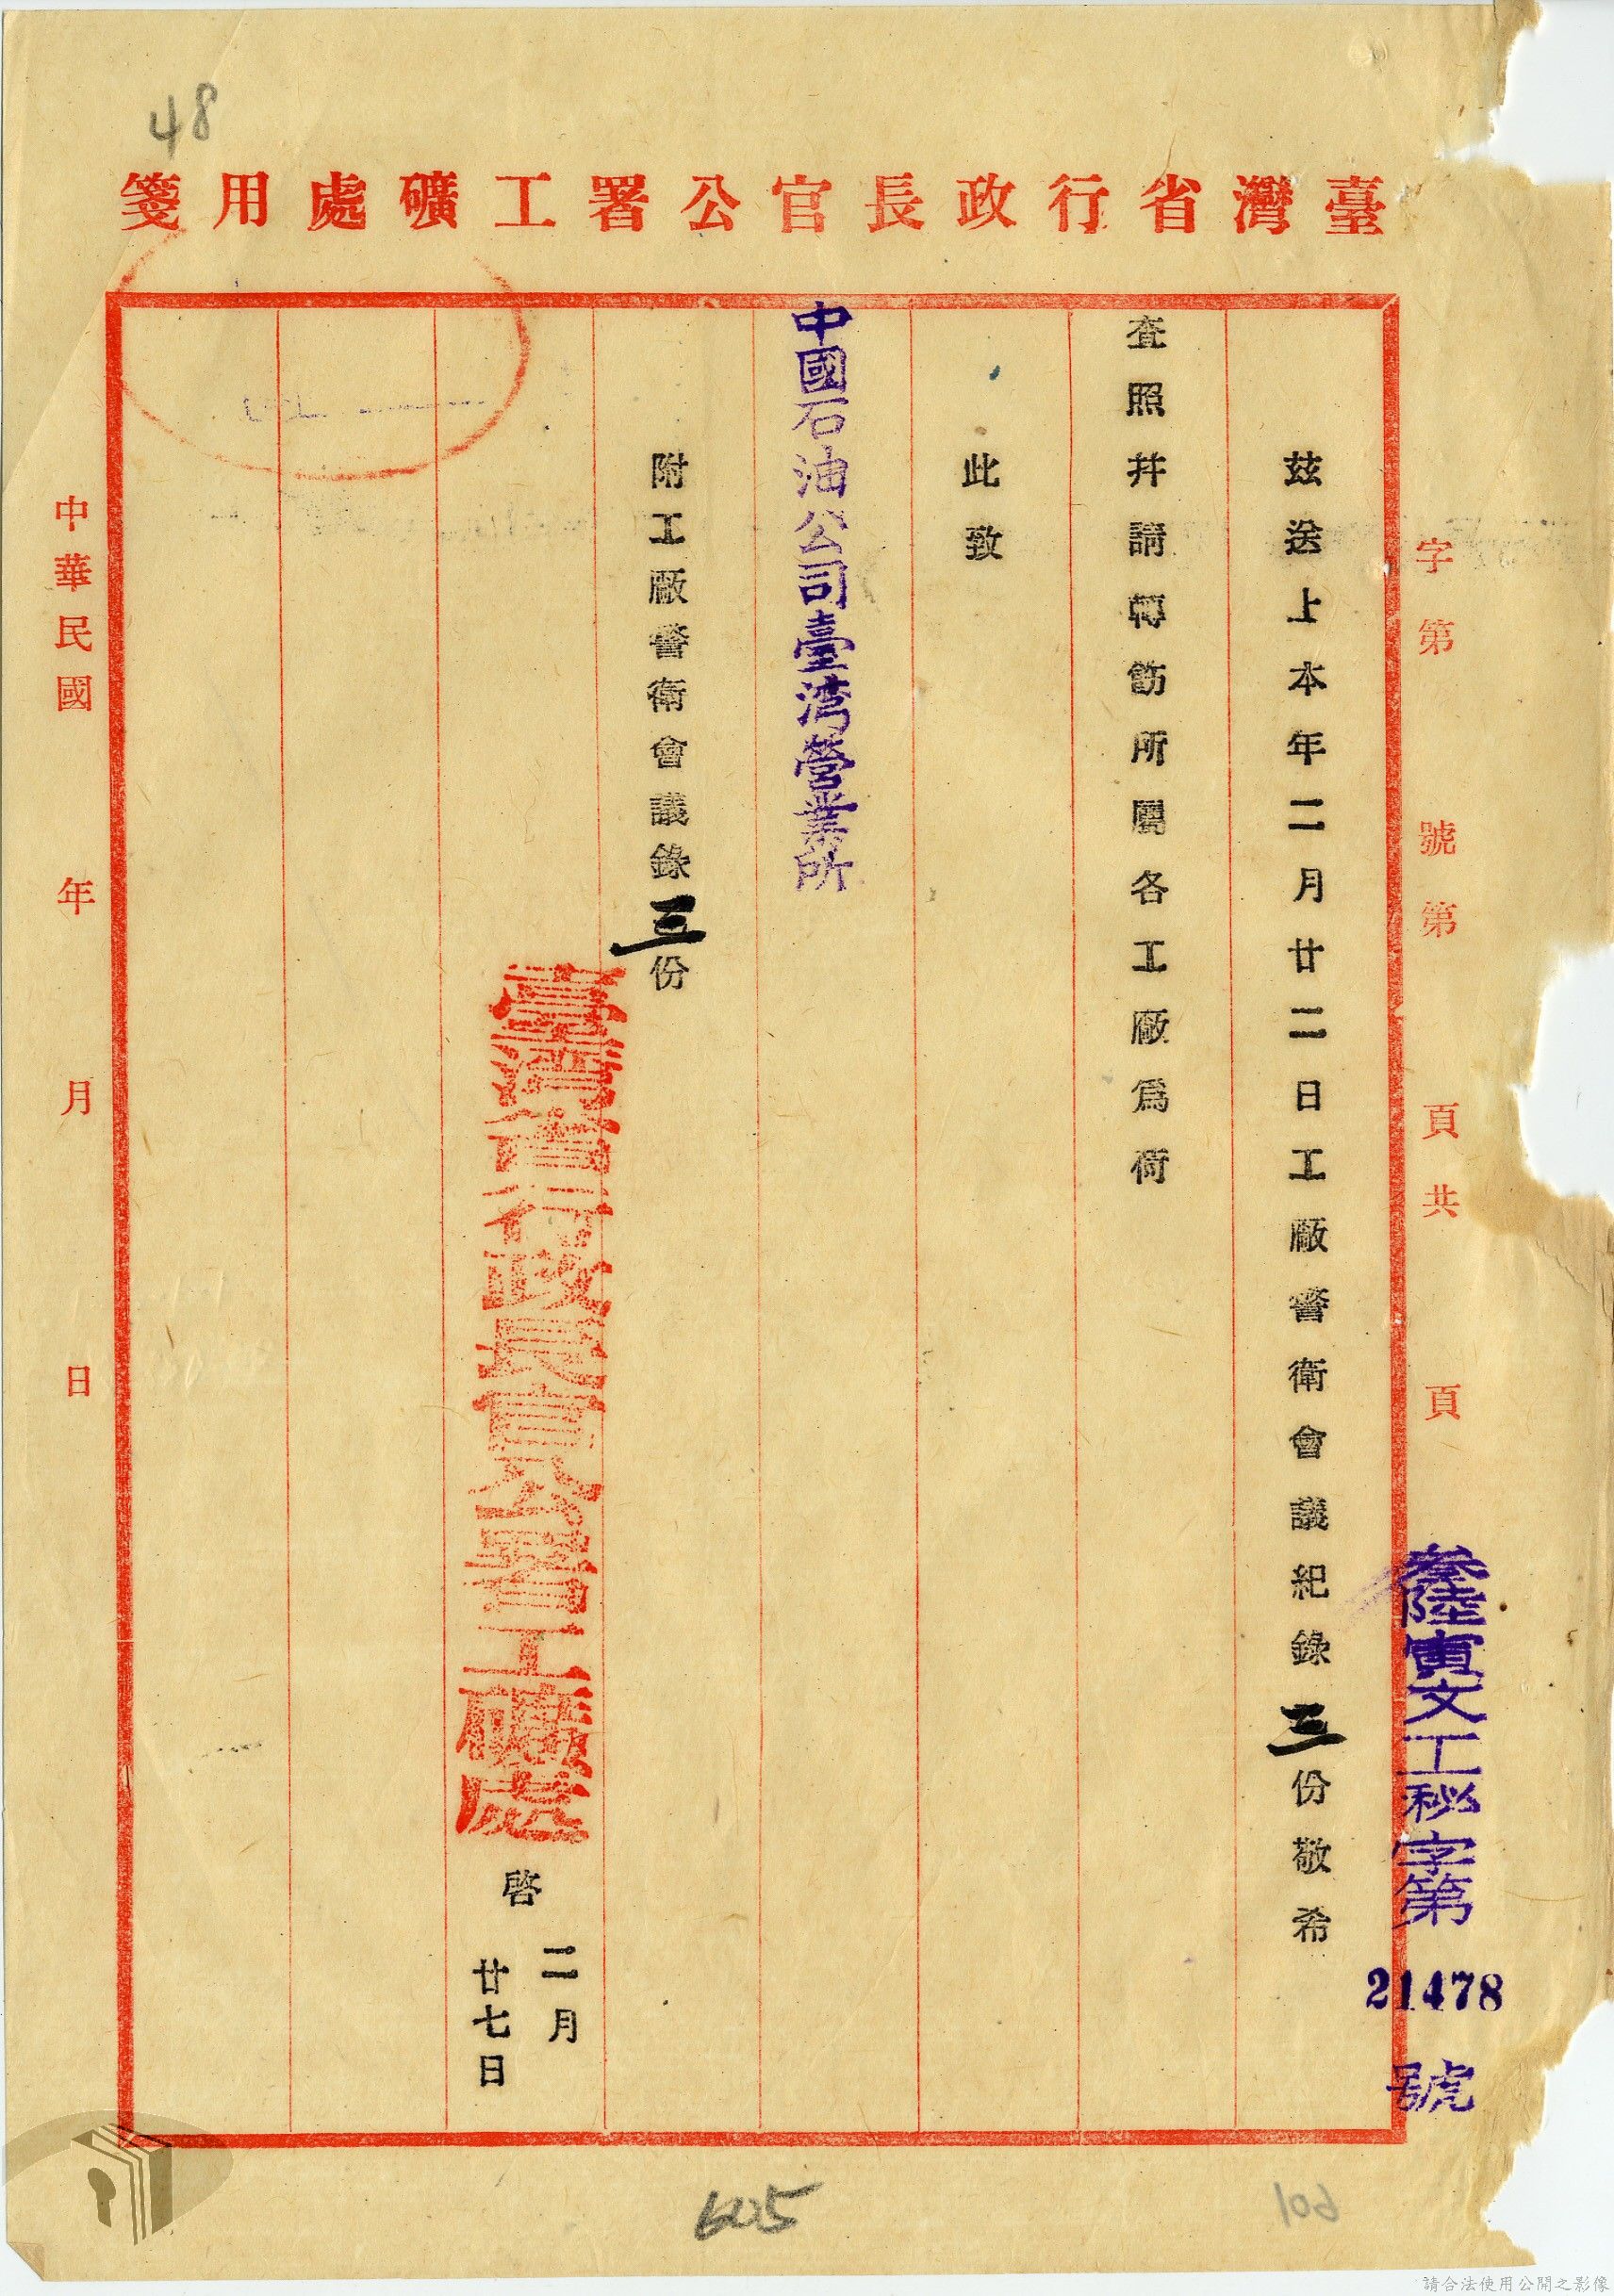 48
臺灣省行政長官公署工礦處用箋
字第　號第　頁共　頁
叁陸寅文工秘字第 21478 號
茲送上本年二月廿二日工廠警衛會議紀錄三份敬希
查照并請轉飭所屬各工廠為荷
此致
中國石油公司臺湾營業所
附工廠警衛會議錄三份
臺灣省行政長官公署工礦處 啓 二月廿七日
中華民國　年　月　日
605
請合法使用公開之影像